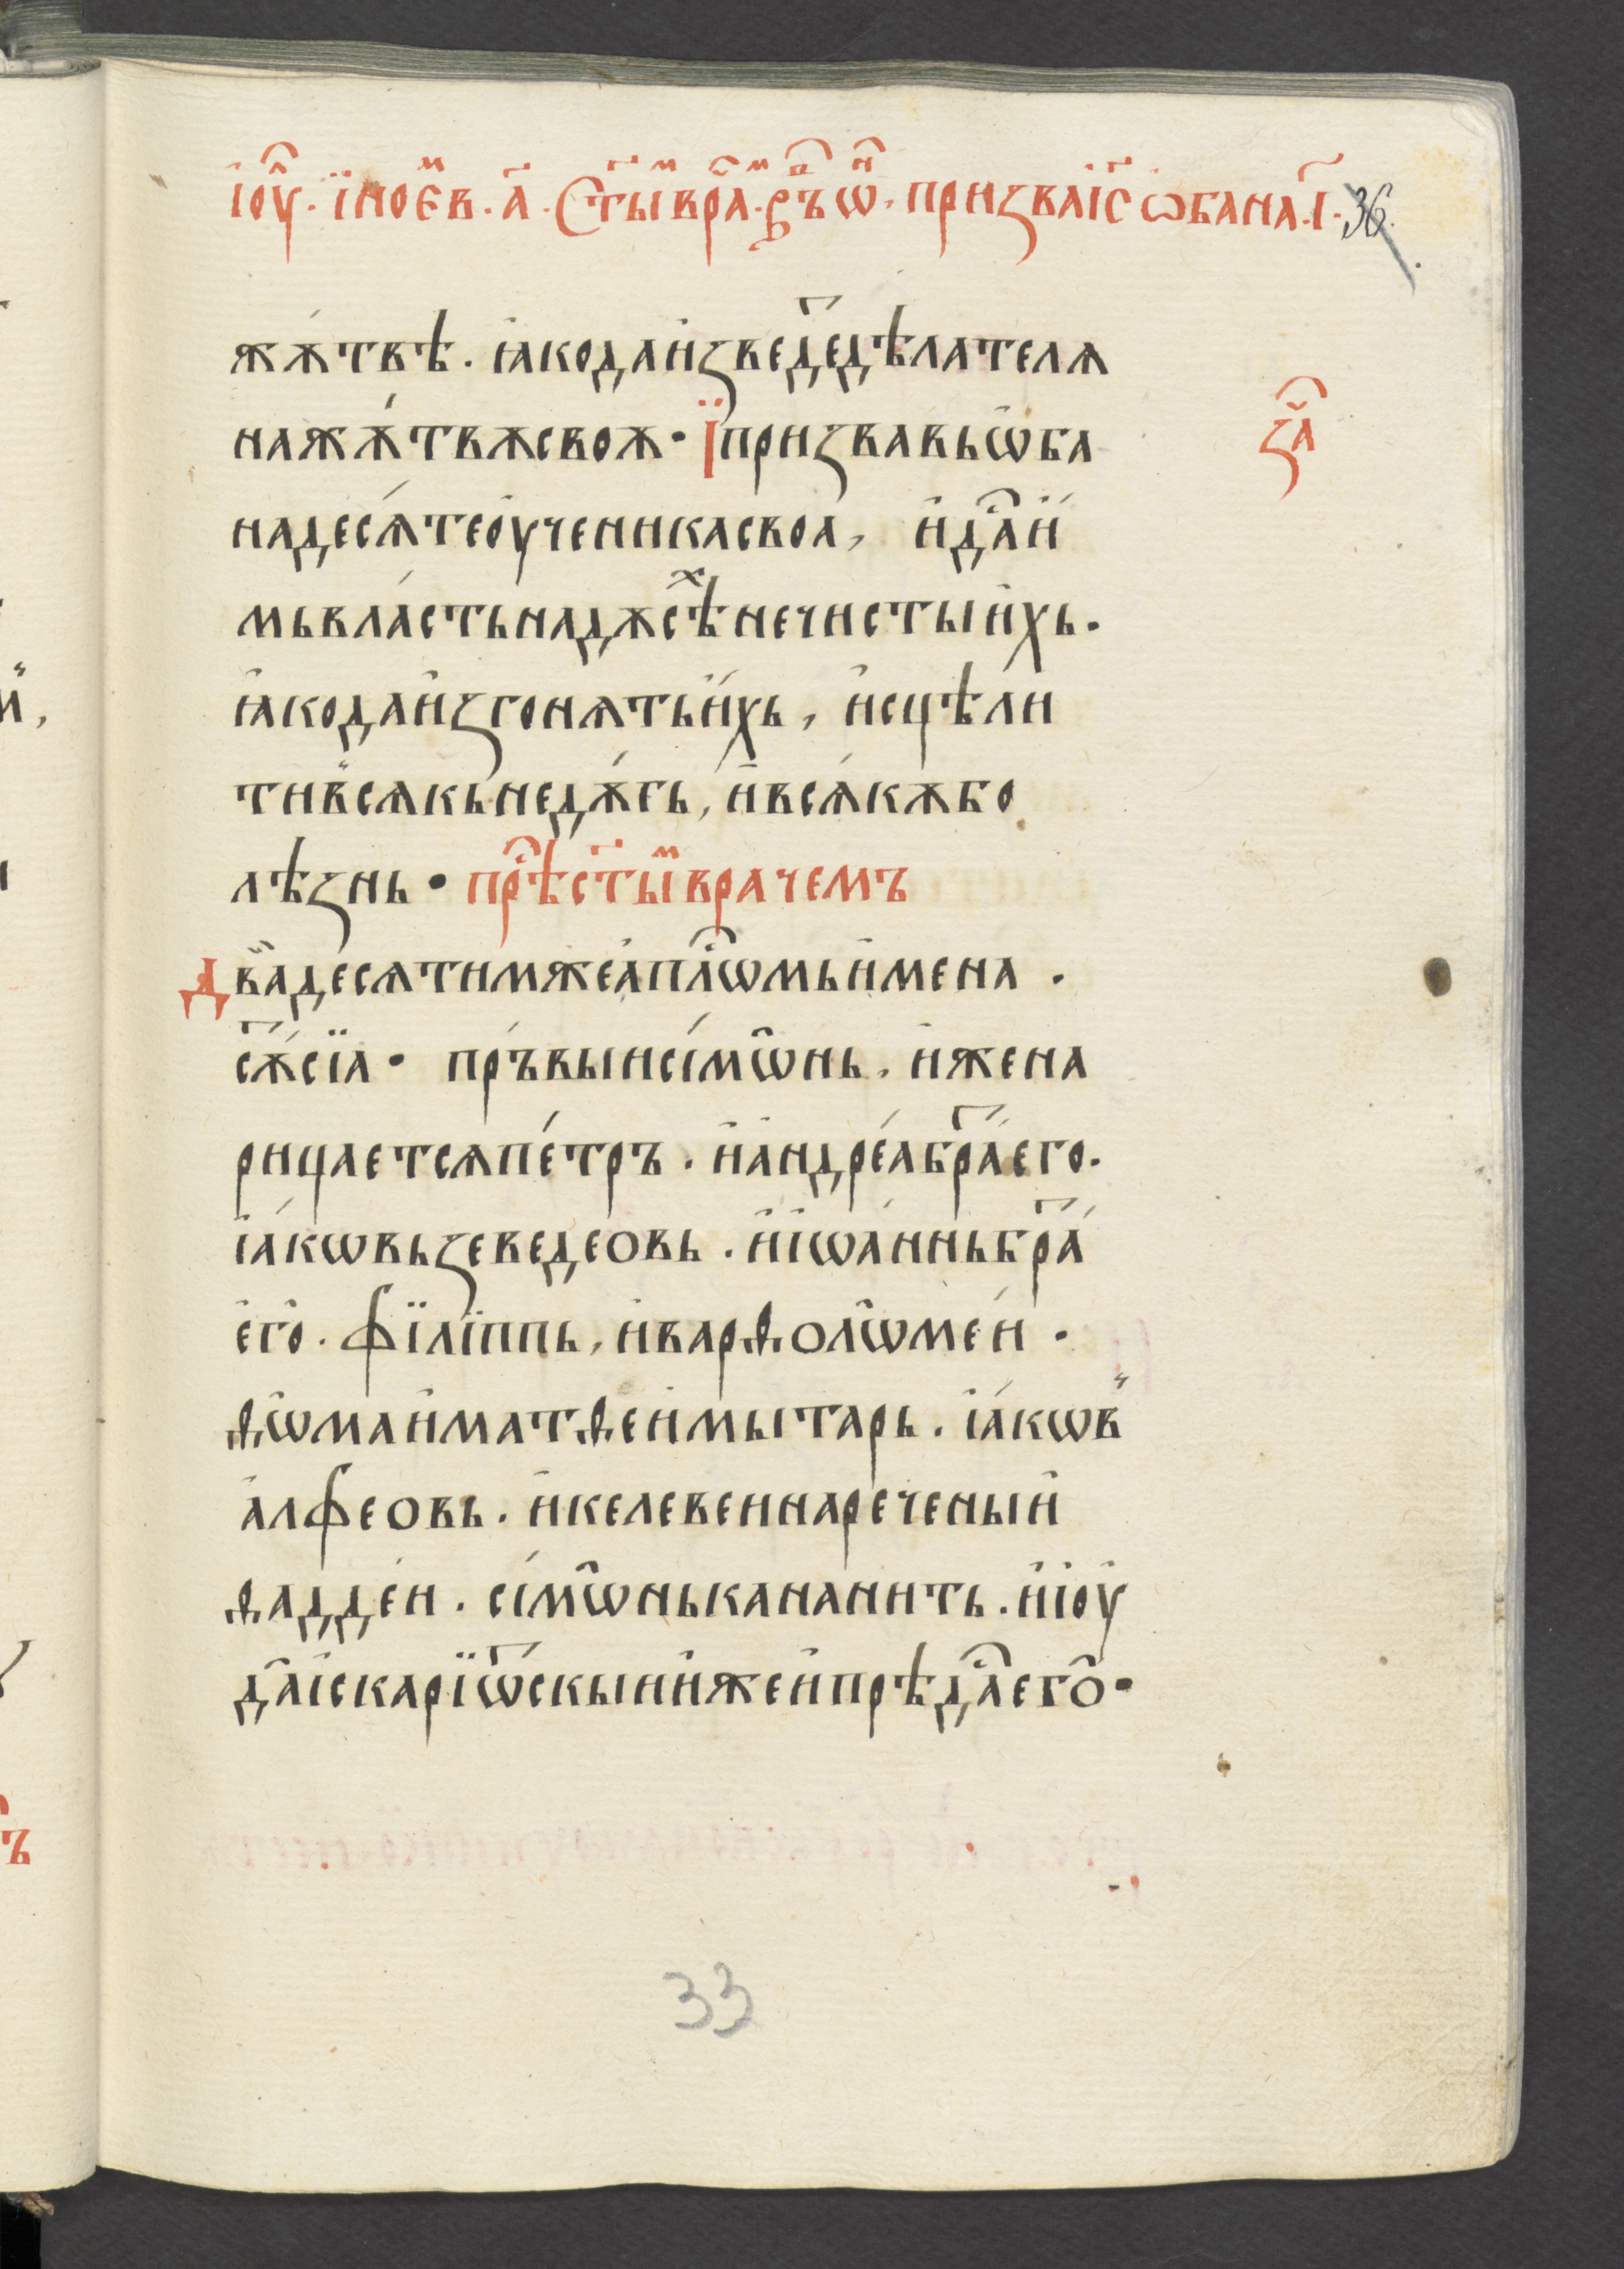 і҆оу҆̑ · їное҆в · а҃ · ст҃ыⷨ врⷱ҇аⷨ · рⷣ҇ъѡⷩ҇ · призва і҆с҃ ѡбана · і҃ · 36
жѫ́твѣ · ꙗ҆ко да и҆ꙁведⷮе дѣлателѧ
на жѧ́твѫ своѫ · Ї призвавь ѡ҆ба
на́десѧ́те оу҆ченика своа , и҆ дⷭ҇а и҆́
мь вла́сть на дѫсѣⷯ нечистыи҆хь ·
ꙗ҆ко да и҆ꙁгонѧть и҆́хь , и҆сцѣли
ти в҆сѧкь недѫ́гь , и҆ всѧ́кѫ бо
лѣꙁнь · прⷣ҇ѣ ст҃ыⷨ врачемъ
Два̋десѧтим же а҆пⷭ҇лѡмь и҆мена ·
сѫⷮ́ сїа · пръвыи сі́мѡ̑нь · и҆же на
рицаетсѧ пе́тръ · и҆ а҆ндре́а браⷮ его ·
і҆а́кѡвь ꙁеведеовь · и҆ і҆ѡа́ннь браⷮ́
е҆го̑ · філі́ппь , и҆ варѳоло̑ме́и ·
ѳѡ̑ма и҆ матѳеи҆ мытарь · і҆а́кѡв̾
а҆лфеовь · и҆ келевеи нареченыи҆
ѳадде́и · сі́мѡ̑нь кананить · и҆ і҆оу҆
да̑ і҆скарїѡⷮскыи и҆же и҆ прѣдⷭ҇а его̑ ·
ꙁаⷱ҇
33